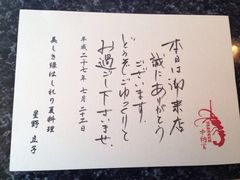 本日は御来店
誠にありがとう
ございます
どうぞごゆっくりと
お過ごし下さいませ
平成二十七年 七月 二十二日
美しき緑はしれり夏料理
星野 立子